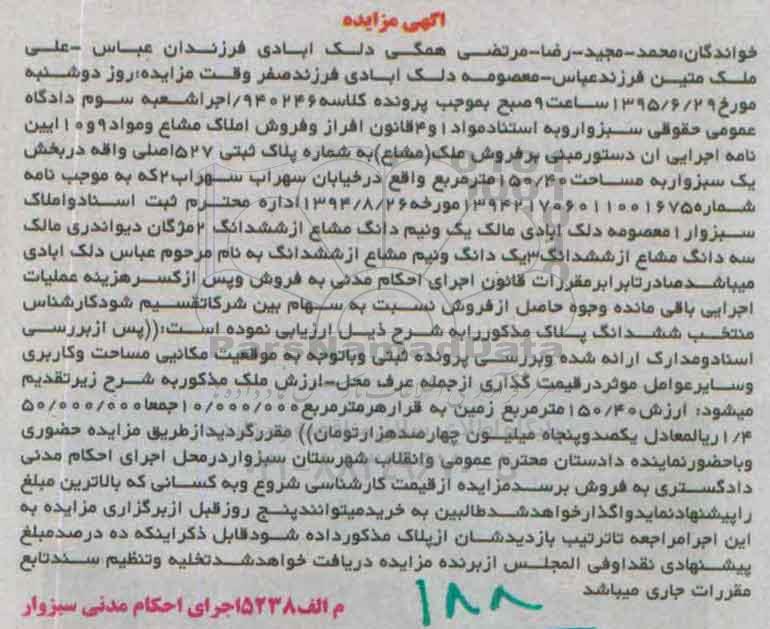 اگهی مزایده
خواندگان:محمد-مجید-رضا-مرتضی همگی دلک ابادی فرزندان عباس -علی
ملک متین فرزندعباس-معصومه دلک ابادی فرزندصفر وقت مزایده:روز دوشنبه
مورخ۱۳۹۵/۶/۲۹ساعت۹صبح بموجب پرونده کلاسه۹۴۰۲۴۶/اجراشعبه سوم دادگاه
عمومی حقوقی سبزواروبه استنادمواد۱و۴قانون افراز وفروش املاک مشاع ومواد۹و۱۰ایین
نامه اجرایی ان دستورمبنی برفروش ملک(مشاع)به شماره پلاک ثبتی ۵۲۷اصلی واقه دربخش
یک سبزواربه مساحت۱۵۰/۴۰مترمربع واقع درخیابان سهراب سهراب۲که به موجب نامه
شماره۱۳۹۴۲۱۷۰۶۰۱۱۰۰۱۶۷۵مورخه۱۳۹۴/۸/۲۶اداره محترم ثبت اسنادواملاک
سبزوار۱معصومه دلک ابادی مالک یک ونیم دانگ مشاع ازششدانگ ۲مژگان دیواندری مالک
سه دانگ مشاع ازششدانگ۳یک دانگ ونیم مشاع ازششدانگ به نام مرحوم عباس دلک ابادی
میباشدصادرتابرابرمقررات قانون اجرای احکام مدنی به فروش وپس ازکسرهزینه عملیات
اجرایی باقی مانده وجوه حاصل ازفروش نسبت به سهام بین شرکاتقسیم شودکارشناس
منتخب ششدانگ پلاک مذکوررابه شرح ذیل ارزیابی نموده است:((پس ازبررسی
اسنادومدارک ارائه شده وبررسی پرونده ثبتی وباتوجه به موقعیت مکانیی مساحت وکاربری
وسایرعوامل موثردرقیمت گذاری ازجمله عرف محل-ارزش ملک مذکوربه شرح زیرتقدیم
میشود: ارزش۱۵۰/۴۰مترمربع زمین به قرارهرمترمربع۱۰/۰۰۰/۰۰۰جمعا۵۰/۰۰۰/۰۰۰
۱/۴ریالمعادل یکصدوپنجاه میلیون چهارصدهزارتومان)) مقررگردیدازطریق مزایده حضوری
وباحضورنماینده دادستان محترم عمومی وانقلاب شهرستان سبزواردرمحل اجرای احکام مدنی
دادگستری به فروش برسدمزایده ازقیمت کارشناسی شروع وبه کسانی که بالاترین مبلغ
راپیشنهادنمایدواگذارخواهدشدطالبین به خریدمیتوانندپنج روزقبل ازبرگزاری مزایده به
این اجرامراجعه تاترتیب بازدیدشان ازپلاک مذکورداده شودقابل ذکراینکه ده درصدمبلغ
پیشنهادی نقداوفی المجلس ازبرنده مزایده دریافت خواهدشدتخلیه وتنظیم سندتابع
مقررات جاری میباشد
م الف۵۲۳۸اجرای احکام مدنی سبزوار
۱۸۸
ParsNamadData